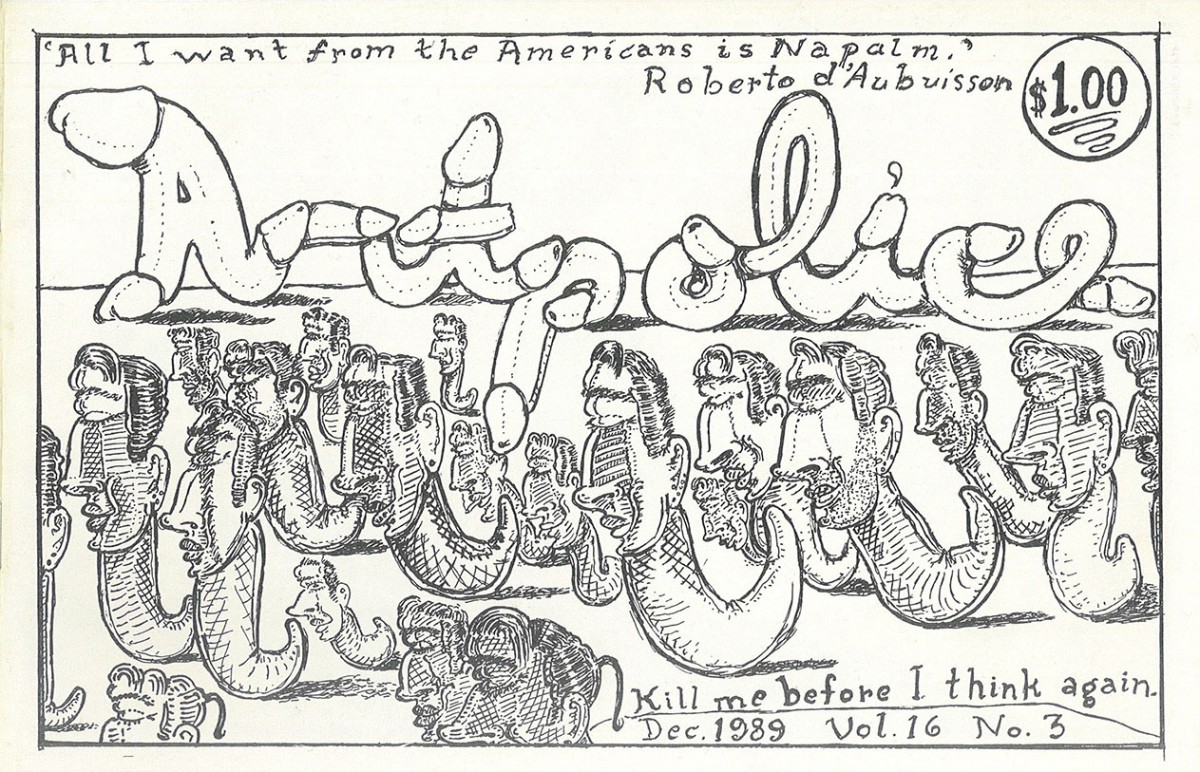 'All I want from the Americans is Napalm.'
Roberto d'Aubuisson
$1.00
Artpolice
Kill me before I think again.
Dec. 1989 Vol. 16 No. 3